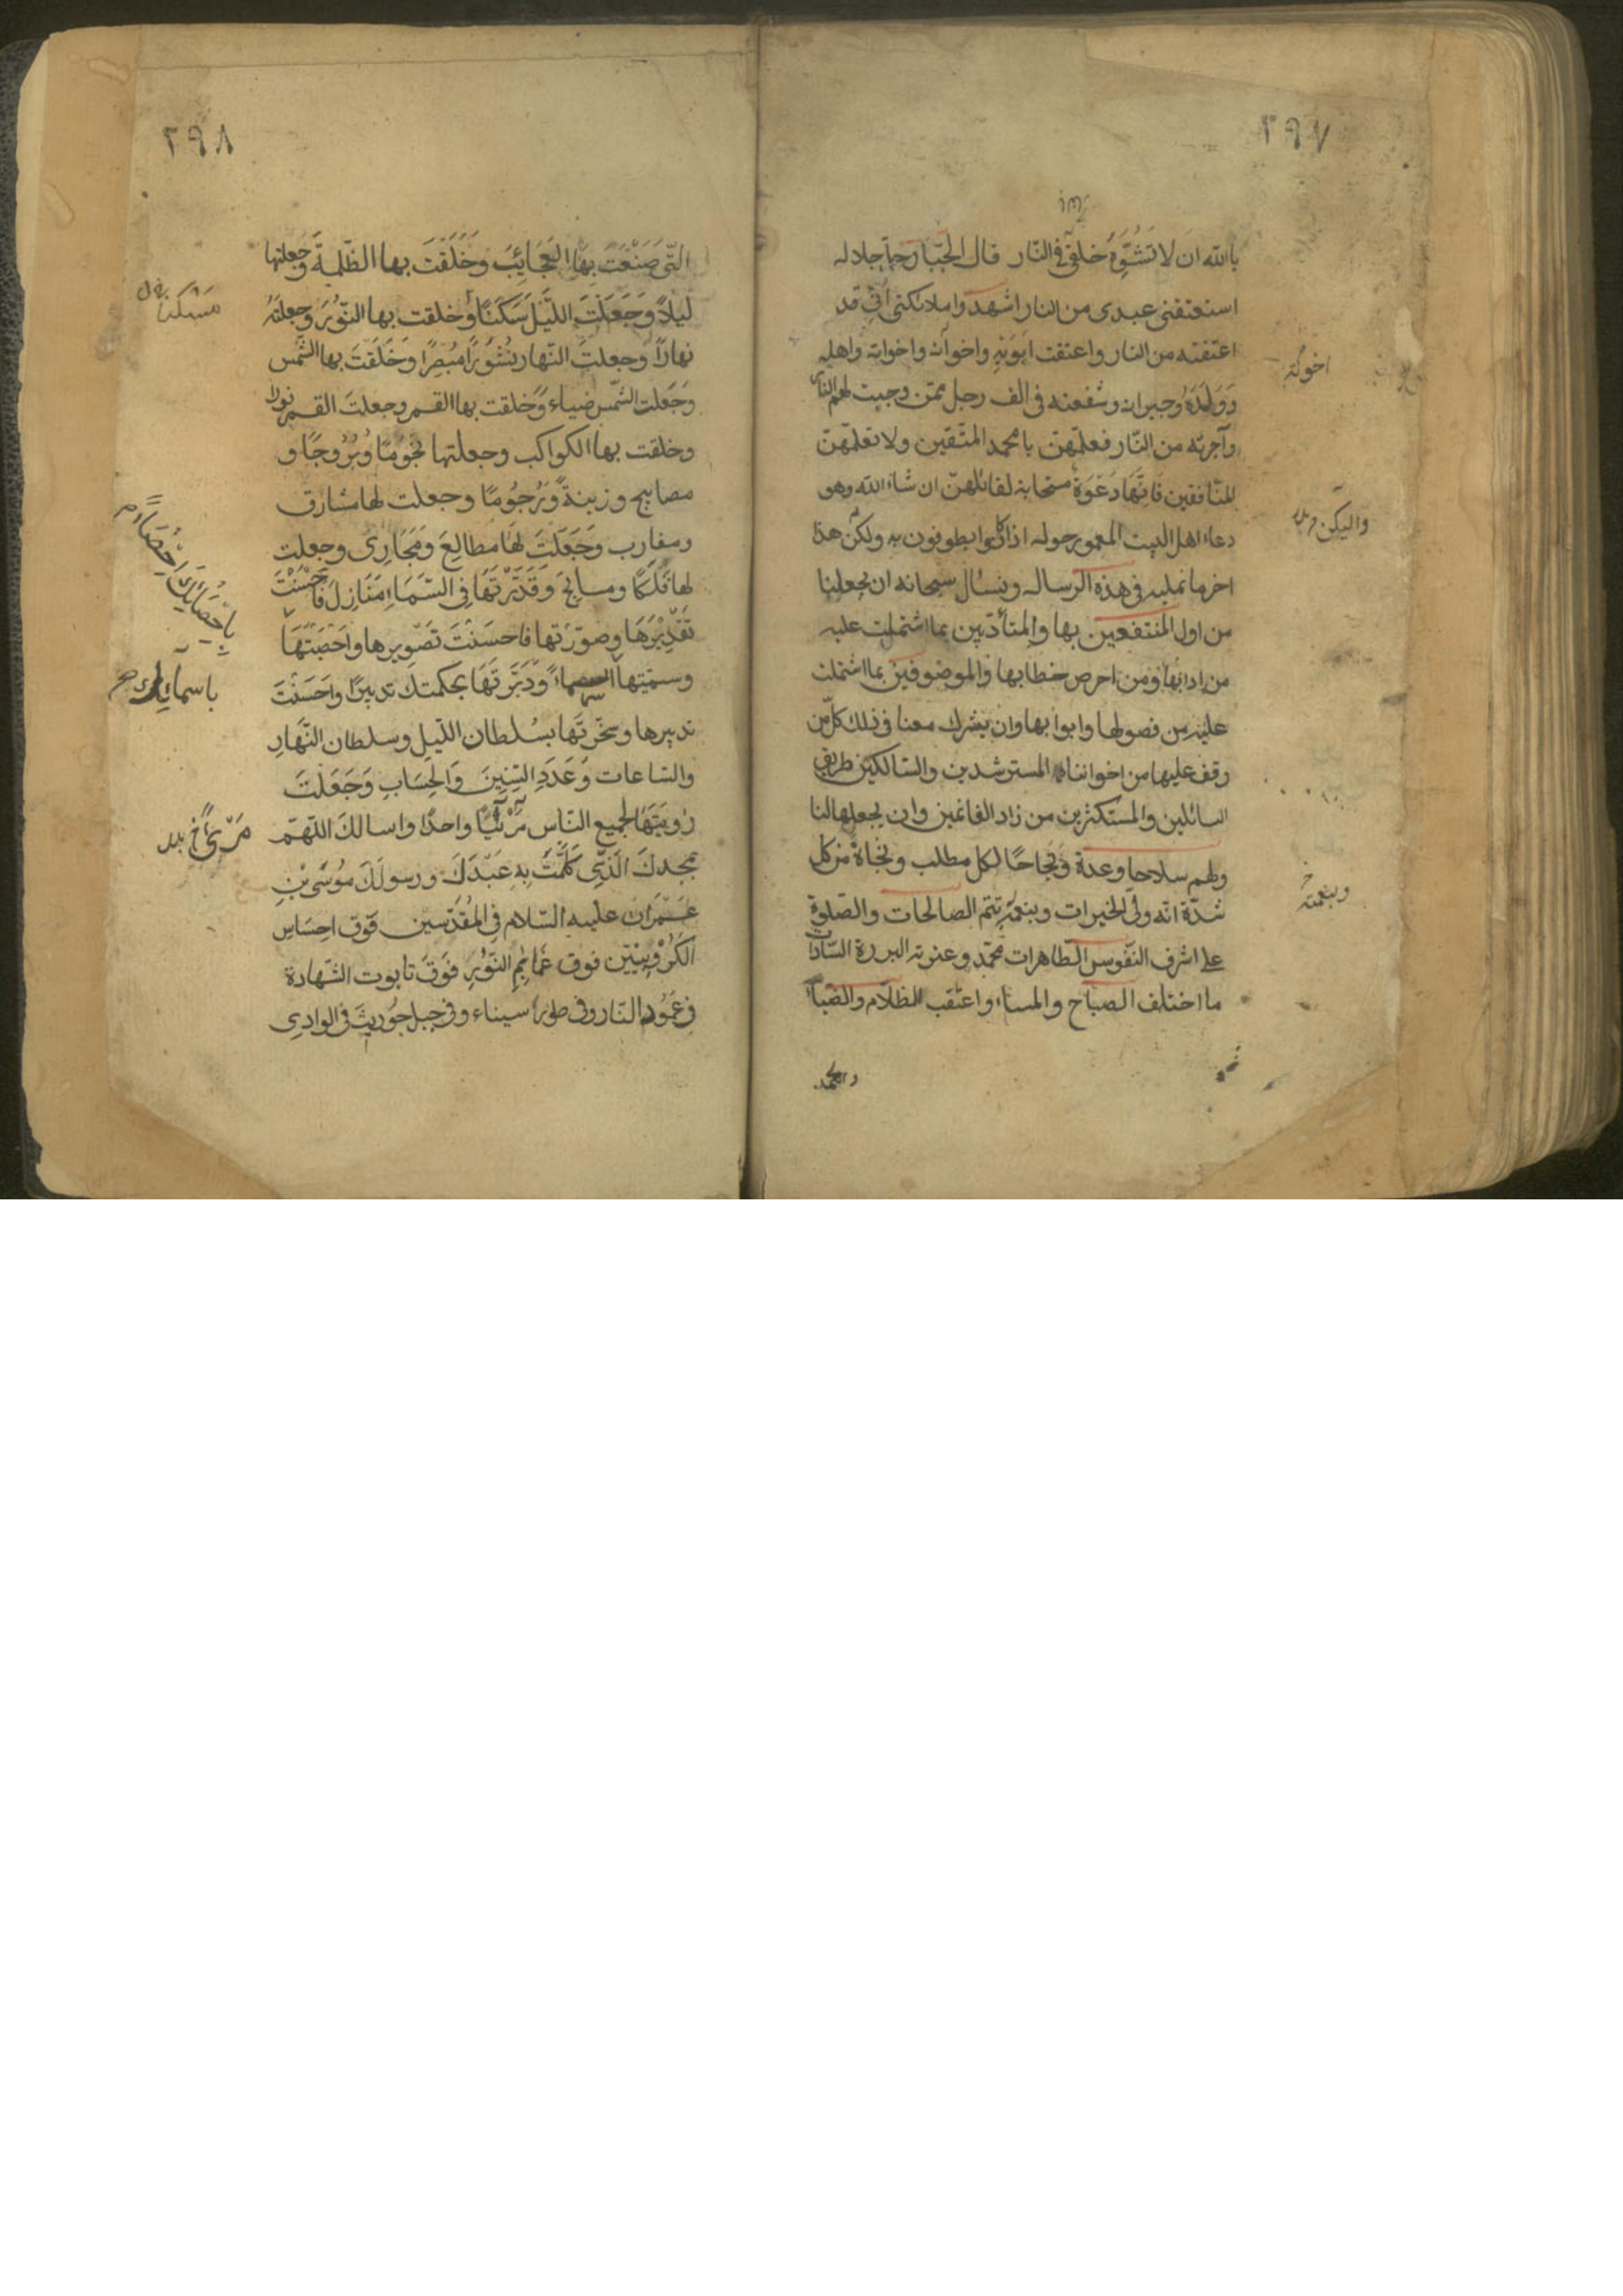 ٢٩٧
بالله ان لا تشوه خلقی فی النار قال الجبار جل جلاله
استعتقنی عبدی من النار اشهدوا ملائکتی انی قد
اعتقته من النار واعتقت ابویه واخوانه واخواته واهله
وولده وجیرانه وشفعته فی الف رجل ممن وجبت لهم النار
وآجرته من النار فعلمهن یا محمد المتقین ولا تعلمهن
المنافقین فانها دعوة مستجابة لقائلهن ان شاء الله وهو
دعاء اهل البیت المعمور حوله اذا کانوا یطوفون به ولکن هذا
اخر ما نملیه فی هذه الرساله ونسال سبحانه ان یجعلنا
من اول المنتفعین بها والمتأدبین بما اشتملت علیه
من ادابها ومن احرص خطابها والموصوفین بما اشتملت
علیه من فصولها وابوابها وان یشرک معنا فی ذلک کل من
وقف علیها من اخواننا المسترشدین والسالکین طریق
السائلین والمستکثرین من زاد الغانمین وان یجعلها لنا
ولهم سلاحا وعدة ونجاحًا لکل مطلب ونجاة من کل
شدة انه ولی الخیرات وبنعمته تتم الصالحات والصلوة
علی اشرف النفوس الطاهرات محمد وعترته البررة السادات
ما اختلف الصباح والمساء واعتقب الظلام والضیاء
والحمد
اخوته
ولیکن
وبنعمته
٢٩٨
التی صَنَعْتَ بِهَا العَجَایِبَ وَخَلَقْتَ بها الظلمةَ وجعلتها
لیلاً وَجَعَلْتَ اللَّیْلَ سَکَنًا وخلقت بها النّورَ وجعلتَهُ
نهاراً وجعلتَ النّهار نُشُورًا مُبْصِرًا وَخَلَقْتَ بها الشّمس
وَجَعَلت الشّمس ضیاء وَخلقت بها القمر وجعلتَ القمر نورا
وخلقت بها الکواکب وجعلتها نُجُومًا وَبُرُوجًا و
مصابیح وزینةً وَرُجُومًا وجعلت لها مشارق
ومغارب وَجَعَلْتَ لهَا مطالِعَ ومَجَارِیَ وجعلت
لها فَلَکًا ومسابِحَ وَقَدَّرْتَهَا فی السَّمَاءِ مَنَازِلَ فَاَحْسَنْتَ
تَقْدِیْرَهَا وصوّرْتها فاحسَنْتَ تَصْوِیرها واَحْصَیْتَهَا
وسمّیتها اسماءً وَدَبَّرْتَهَا بحکمتک تدبیرًا واَحْسَنْتَ
تدبیرها وسخّرتَهَا بسُلطان اللّیل وسلطان النّهارِ
والسّاعات وَعَدَدِ السِّنِینَ وَالحِسَابِ وَجَعَلْتَ
رُویَتَهَا لجمیع النّاس مَرْئیًّا واحدًا واسالکَ اللّهمّ
بمجدکَ الَّذِی کَلَّمْتَ بِهِ عَبْدَکَ ورسولَکَ مُوسَی بْنِ
عِمْرَانَ علیه السّلام فی المُقَدَّسین فَوق احسَاسِ
الکَرُوبِیِّین فوق غَمَائِمِ النّوْرِ فَوقَ تابوت الشّهادة
فی عَمُودِ النّار وفی طور سیناء وفی جبل حُورِیثَ فی الوادِی
باِحْصَایِکَ اِحْصَاءً
باسمایک